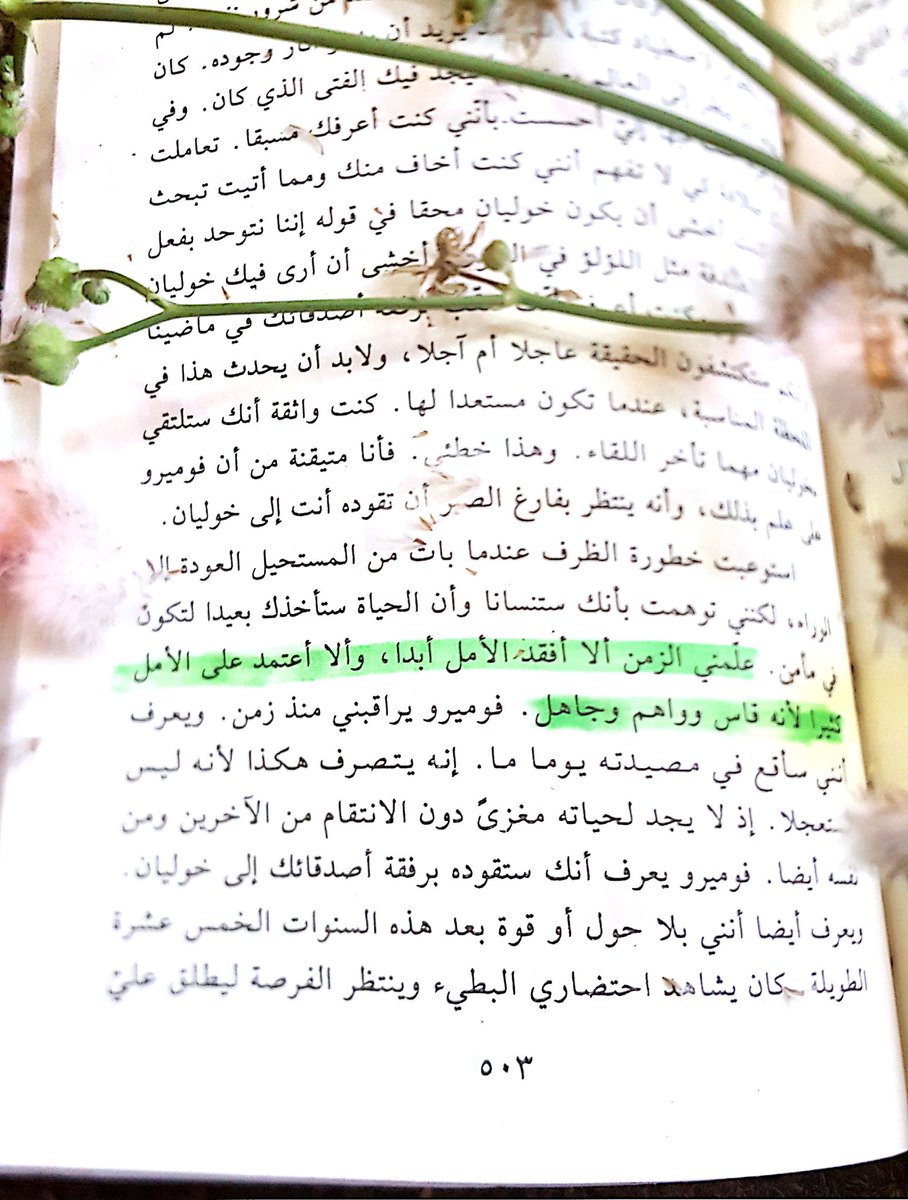 من شرور
يريد أن وجوده. كان
إلى العالم فيك الفتى الذي كان. وفي
أحسست بأنني كنت أعرفك مسبقا. تعاملت
لا تفهم أنني كنت أخاف منك ومما أتيت تبحث
أخشى أن يكون خوليان محقا في قوله إننا نتوحد بفعل
مثل اللؤلؤ في أخشى أن أرى فيك خوليان
برفقة أصدقائك في ماضينا
ستكتشفون الحقيقة عاجلا أم آجلا، ولابد أن يحدث هذا في
اللحظة المناسبة، عندما تكون مستعدا لها. كنت واثقة أنك ستلتقي
بخوليان مهما تأخر اللقاء. وهذا خطئي. فأنا متيقنة من أن فوميرو
على علم بذلك، وأنه ينتظر بفارغ الصبر أن تقوده أنت إلى خوليان.
استوعبت خطورة الظرف عندما بات من المستحيل العودة إلى
الوراء، لكنني توهمت بأنك ستنسانا وأن الحياة ستأخذك بعيدا لتكون
في مأمن. علّمني الزمن ألا أفقد الأمل أبدا، وألا أعتمد على الأمل
كثيرا لأنه قاس وواهم وجاهل. فوميرو يراقبني منذ زمن. ويعرف
أنني سأقع في مصيدته يوما ما. إنه يتصرف هكذا لأنه ليس
مستعجلا. إذ لا يجد لحياته مغزىً دون الانتقام من الآخرين ومن
نفسه أيضا. فوميرو يعرف أنك ستقوده برفقة أصدقائك إلى خوليان.
ويعرف أيضا أنني بلا حول أو قوة بعد هذه السنوات الخمس عشرة
الطويلة. كان يشاهد احتضاري البطيء وينتظر الفرصة ليطلق عليّ
٥٠٣